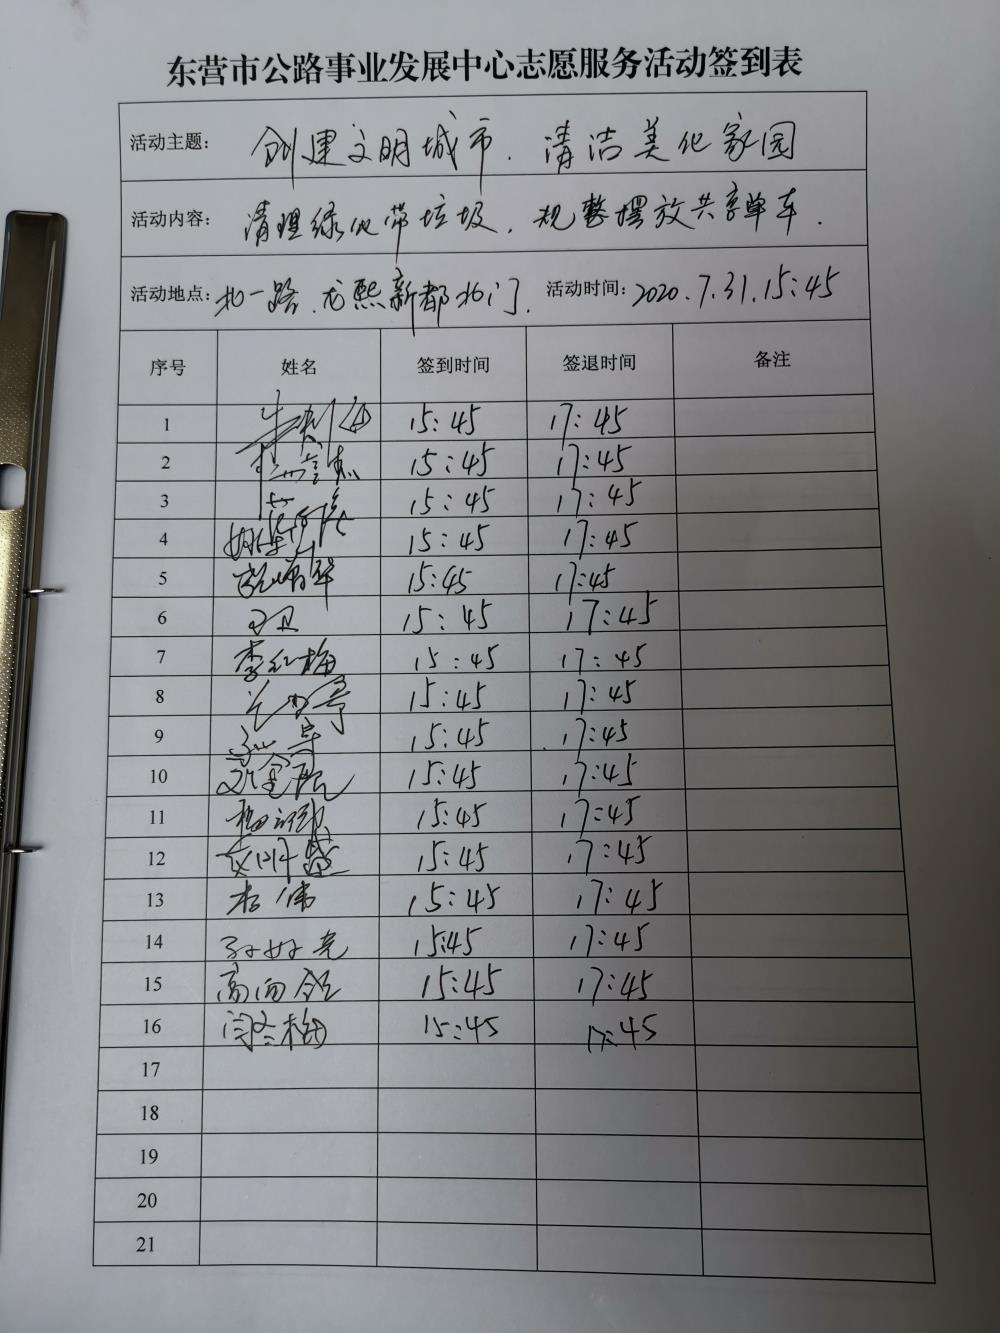 东营市公路事业发展中心志愿服务活动签到表
活动主题: 创建文明城市、清洁美化家园
活动内容: 清理绿化带垃圾,规整摆放共享单车.
活动地点: 北一路、龙熙新都北门 活动时间: 2020.7.31.15:45
序号 姓名 签到时间 签退时间 备注
1 15:45 17:45
2 15:45 17:45
3 15:45 17:45
4 15:45 17:45
5 15:45 17:45
6 15:45 17:45
7 李红梅 15:45 17:45
8 15:45 17:45
9 15:45 17:45
10 15:45 17:45
11 15:45 17:45
12 15:45 17:45
13 杜伟 15:45 17:45
14 15:45 17:45
15 15:45 17:45
16 闫冬梅 15:45 17:45
17
18
19
20
21